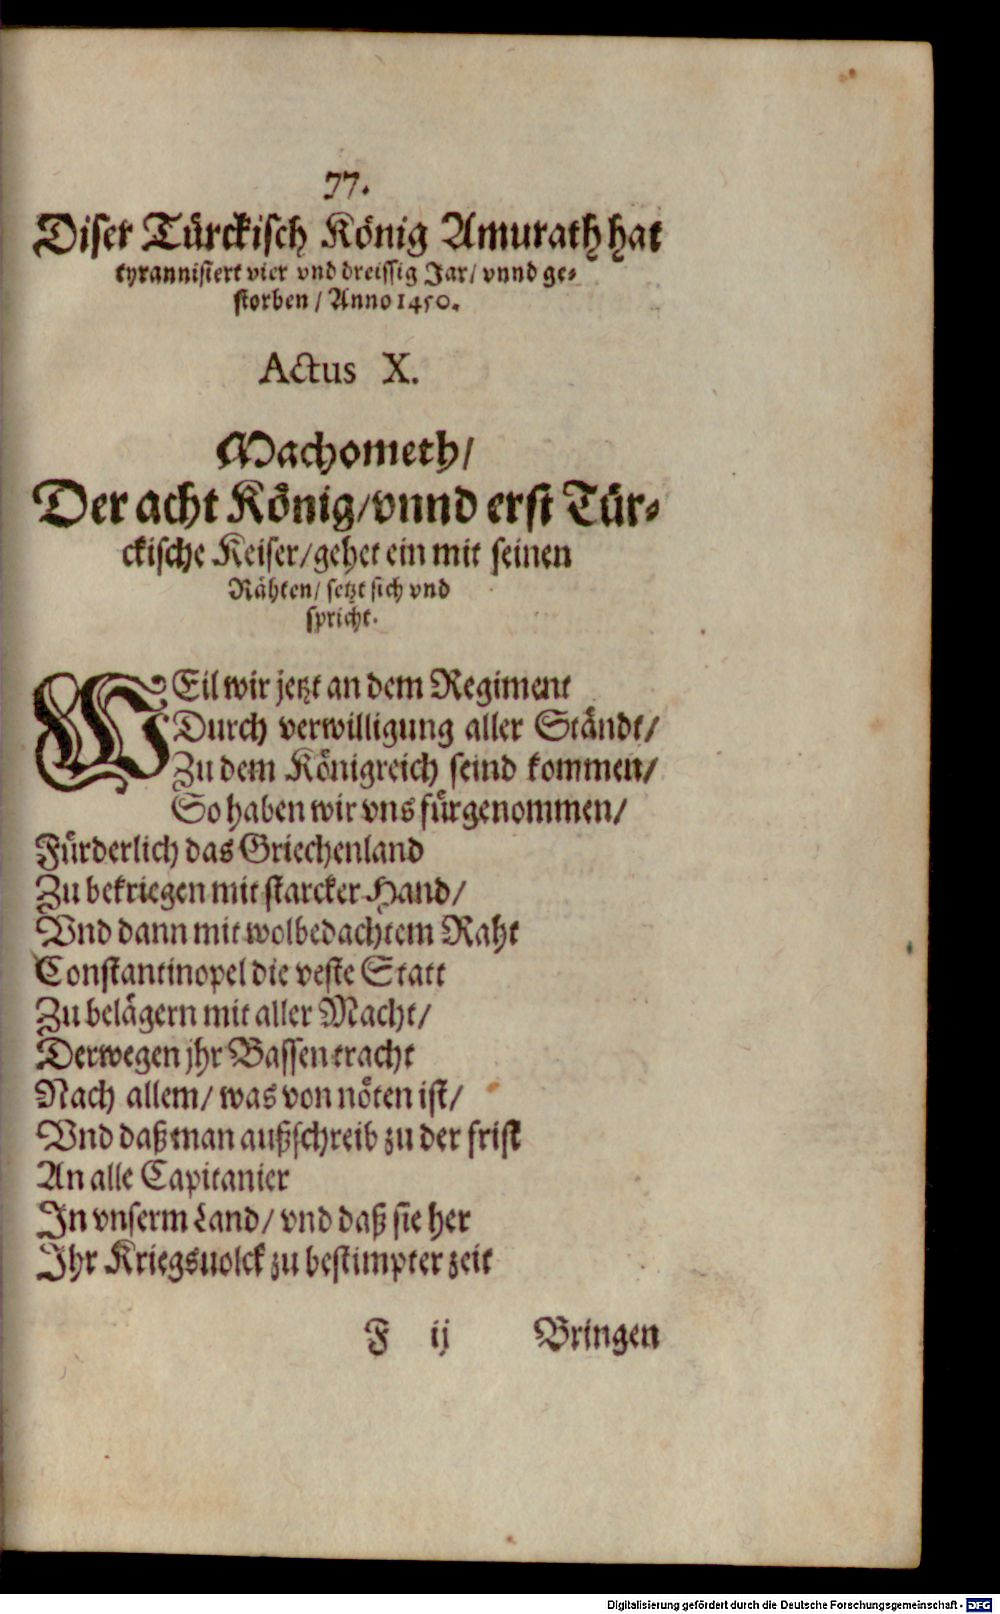 77.
Diser Türckisch König Amurath hat
tyrannisiert vier vnd dreissig Jar/ vnnd ge-
storben/ Anno 1450.
Actus X.
Machometh/
Der acht König/ vnnd erst Tür-
ckische Keiser/ gehet ein mit seinen
Rähten/ setzt sich vnd
spricht.
WEil wir jetzt an dem Regiment
Durch verwilligung aller Ständt/
Zu dem Königreich seind kommen/
So haben wir vns fürgenommen/
Fürderlich das Griechenland
Zu bekriegen mit starcker Hand/
Vnd dann mit wolbedachtem Raht
Constantinopel die veste Statt
Zu belägern mit aller Macht/
Derwegen jhr Bassen tracht
Nach allem/ was von nöten ist/
Vnd daß man außschreib zu der frist
An alle Capitanier
In vnserm Land/ vnd daß sie her
Ihr Kriegsuolck zu bestimpter zeit
F ij Bringen
Digitalisierung gefördert durch die Deutsche Forschungsgemeinschaft - DFG